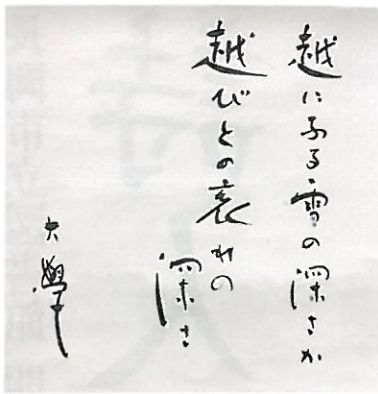 越にふる雪の深さか
越びとの哀れの
深さ
大學